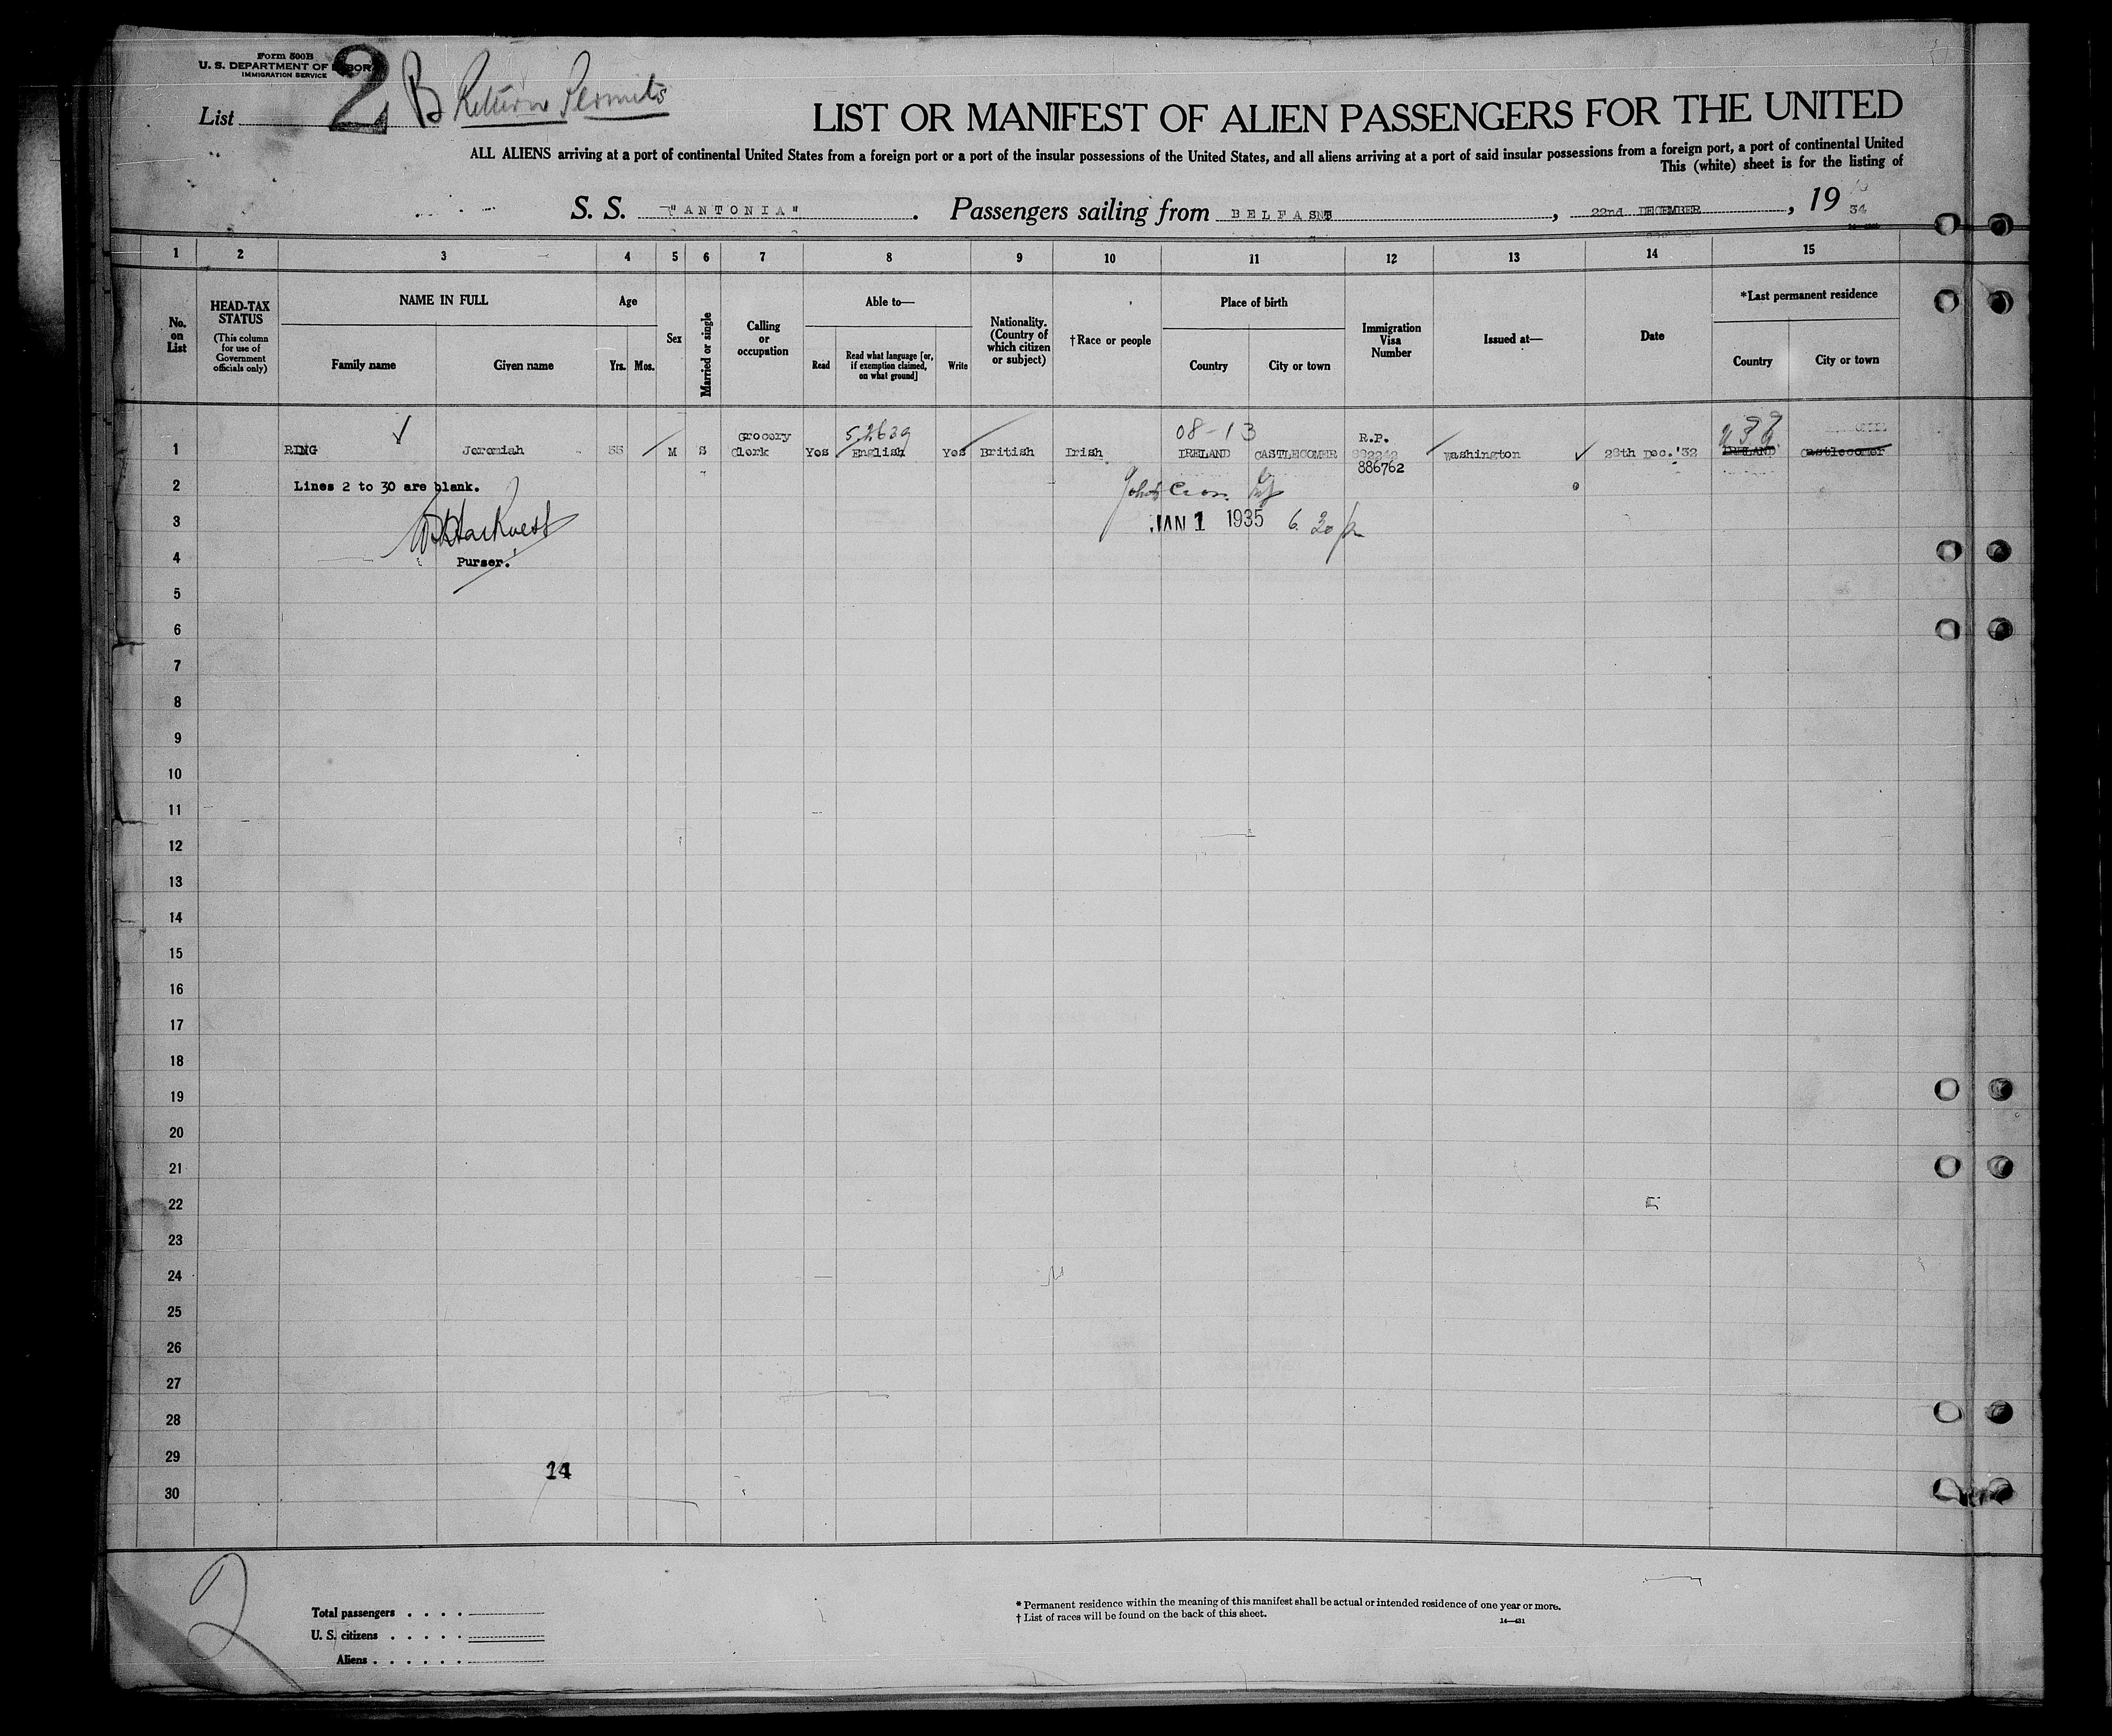 Form 500B
U. S. DEPARTMENT OF LABOR
IMMIGRATION SERVICE
List 2 B Return Permits
LIST OR MANIFEST OF ALIEN PASSENGERS FOR THE UNITED
ALL ALIENS arriving at a port of continental United States from a foreign port or a port of the insular possessions of the United States, and all aliens arriving at a port of said insular possessions from a foreign port, a port of continental United
This (white) sheet is for the listing of
S. S. "ANTONIA". Passengers sailing from BELFAST, 22nd DECEMBER, 19 34
1 2 3 4 5 6 7 8 9 10 11 12 13 14 15
No. on List
HEAD-TAX STATUS
(This column for use of Government officials only)
NAME IN FULL
Family name
Given name
Age
Yrs. Mos.
Sex
Married or single
Calling or occupation
Able to—
Read
Read what language [or, if exemption claimed, on what ground]
Write
Nationality. (Country of which citizen or subject)
†Race or people
Place of birth
Country
City or town
Immigration Visa Number
Issued at—
Date
*Last permanent residence
Country
City or town
52639
08-13
1 RING Jeremiah 55 M S Grocery Clerk Yes English Yes British Irish IRELAND CASTLECOMER R.P. 882242 Washington 28th Dec.'32 IRELAND Castlecomer
886762
2 Lines 2 to 30 are blank.
3 JAN 1 1935 6.30
4 Purser.
5
6
7
8
9
10
11
12
13
14
15
16
17
18
19
20
21
22
23
24
25
26
27
28
29
14
30
2
Total passengers
U. S. citizens
Aliens
* Permanent residence within the meaning of this manifest shall be actual or intended residence of one year or more.
† List of races will be found on the back of this sheet.
14—431